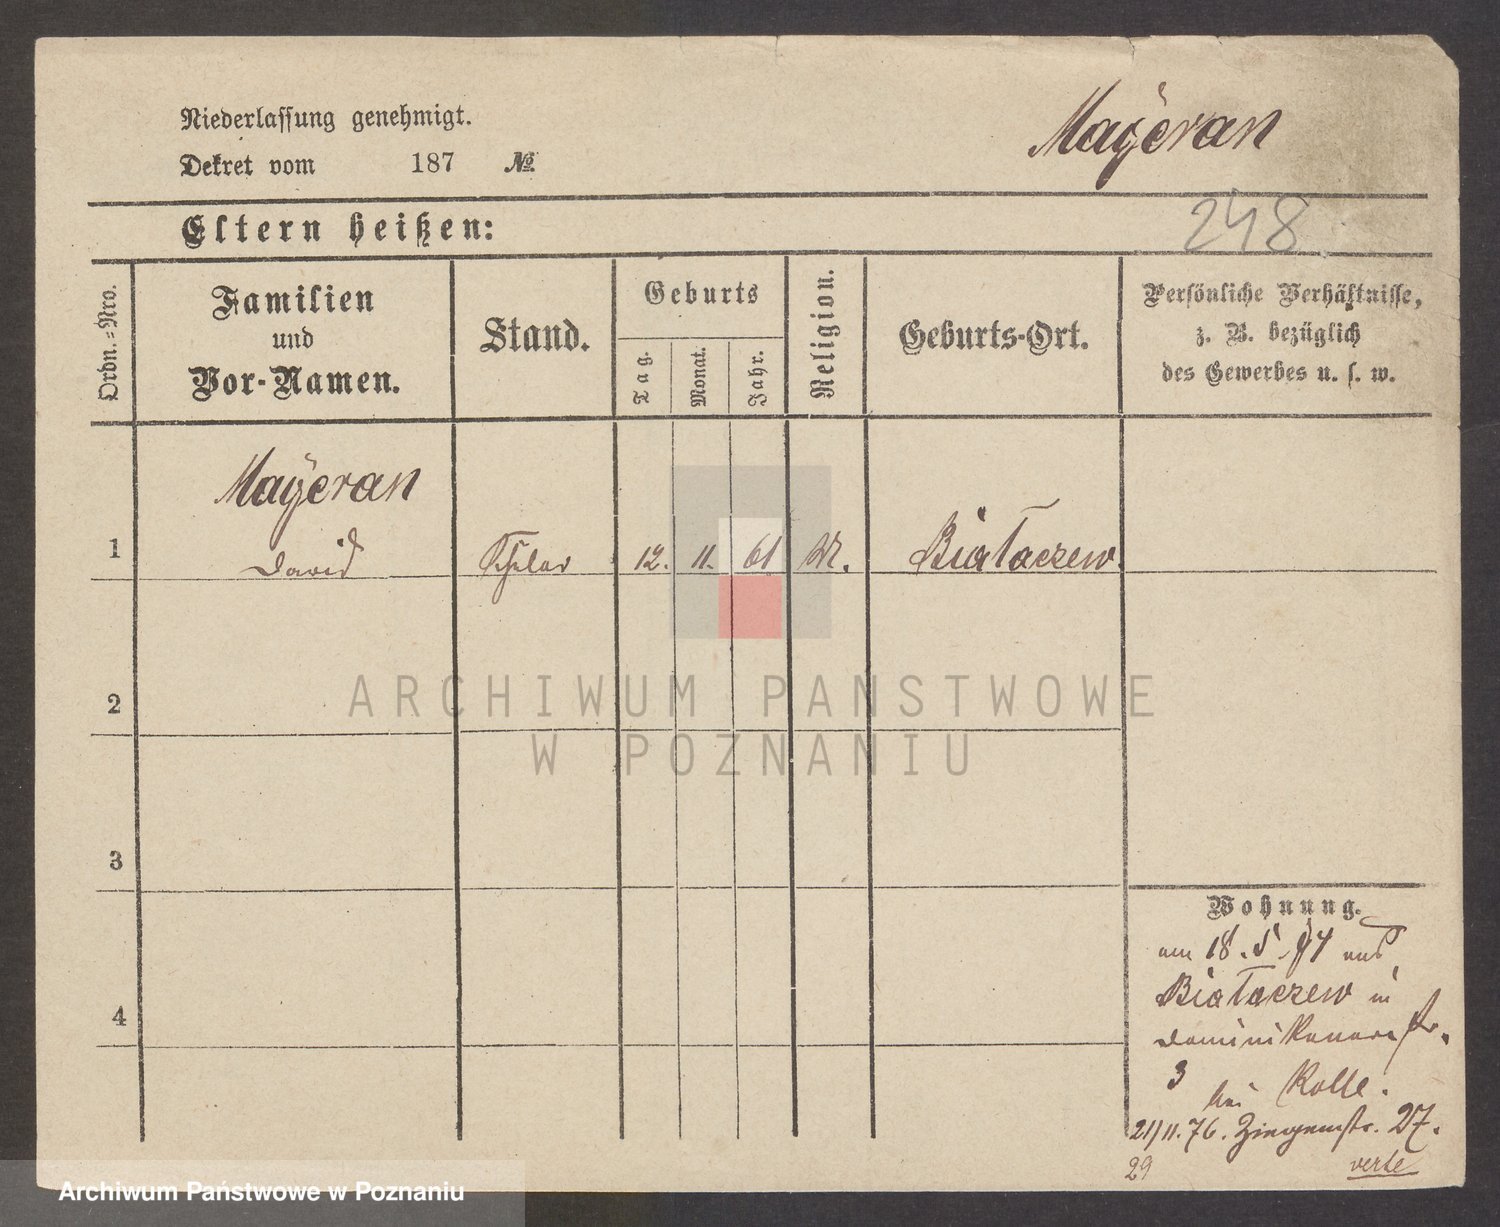 Niederlassung genehmigt.
Dekret vom 187 №
Mayeran
248
Eltern heißen:
Ordn.=Nro.
Familien
und
Vor-Namen.
Stand.
Geburts
Tag.
Monat.
Jahr.
Religion.
Geburts-Ort.
Persönliche Verhältnisse,
z. B. bezüglich
des Gewerbes u. s. w.
Mayeran
1 David 12. 11. 61 Białaczew.
2
3
4
Wohnung.
am 18. 5. 74 aus
Białaczew in
Dominikanerstr.
3 bei Kolle.
21/11. 76. Ziegenstr. 27.
29 verte
ARCHIWUM PAŃSTWOWE
W POZNANIU
Archiwum Państwowe w Poznaniu